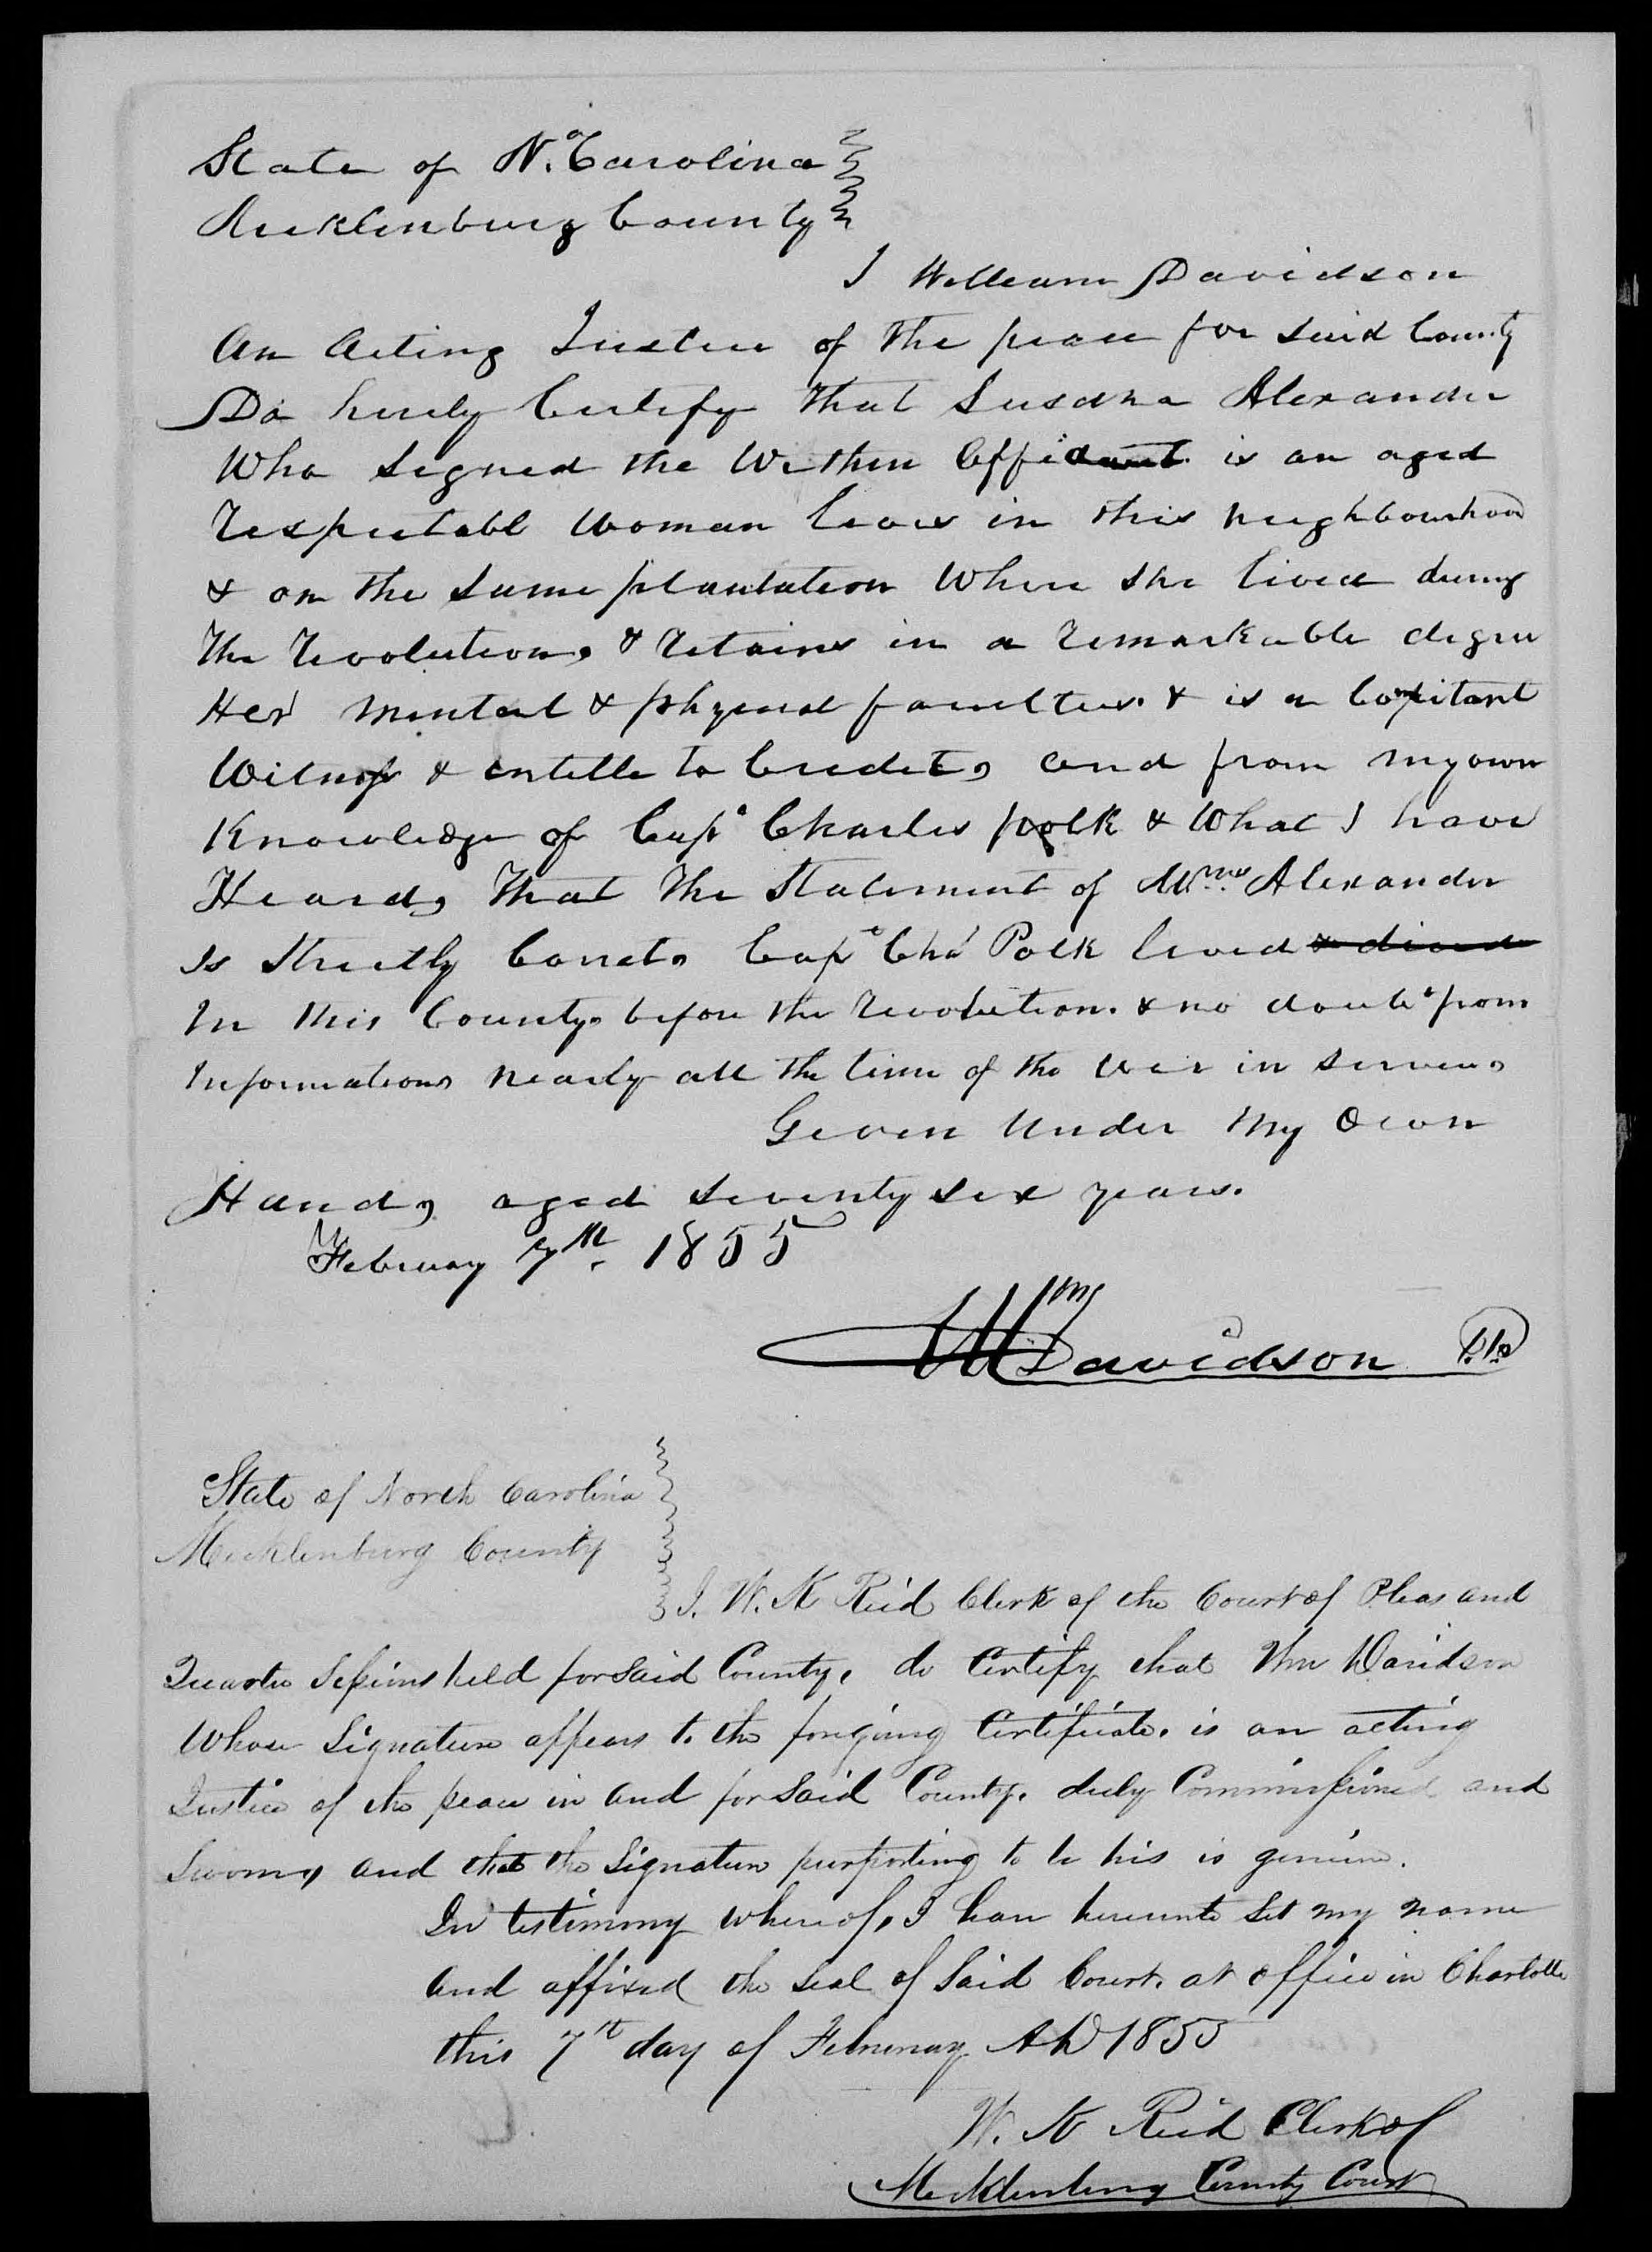 State of No. Carolina
Mecklenburg County
I William Davidson
An Acting Justice of the peace for said County
Do hereby Certify that Susana Alexander
Who signed the Within Affidavit is an aged
respectabl Woman lives in this neighbourhood
& on the same plantation Where she lived during
the revolution, & retains in a remarkable degree
Her mental & physical faculties. & is a Compitant
Witness & entitle to Credit, and from my own
Knowledge of Capt Charles polk & What I have
Heard, that the Statement of Mrs Alexander
Is strictly Correct, Capt Chs Polk lived & died
In this County, before the revolution. & no doubt from
Information, nearly all the time of the war in service,
Given Under My Own
Hand, aged seventy six years.
February 7th. 1855
Wm Davidson
State of North Carolina
Mecklenburg County
I. W. K Reid Clerk of the Court of Pleas and
Quarter Sessions held for said County, do Certify that Wm Davidson
Whose Signature appears to the forgoing Certificate, is an acting
Justice of the peace in and for said County, duly Commissioned and
Sworn, and that the Signature purporting to be his is genuine.
In testimony whereof, I have hereunto set my name
and affixed the seal of said Court, at office in Charlotte
this 7th day of February AD 1855
W. K Reid Clerk of
Mecklenburg County Court